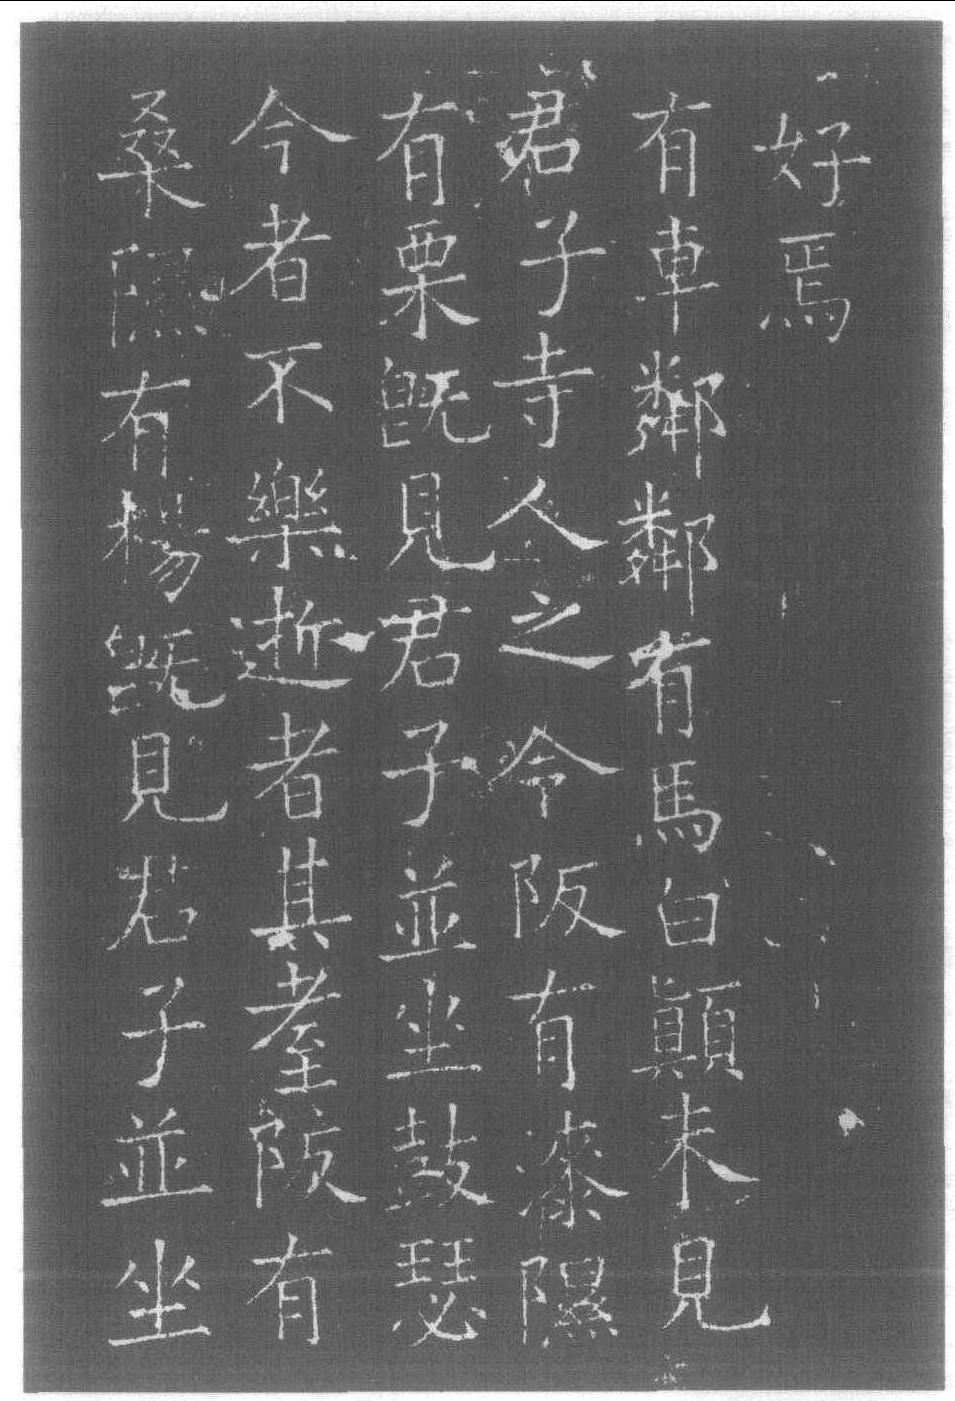 好焉
有車鄰鄰有馬白顛未見
君子寺人之令阪有漆隰
有栗既見君子並坐鼓瑟
今者不樂逝者其耋阪有
桑隰有楊既見君子並坐